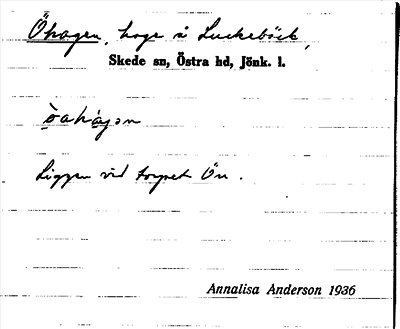 Öhagen, hage i Luckebäck,
Skede sn, Östra hd, Jönk. l.
Ligger vid torpet Ön.
Annalisa Anderson 1936